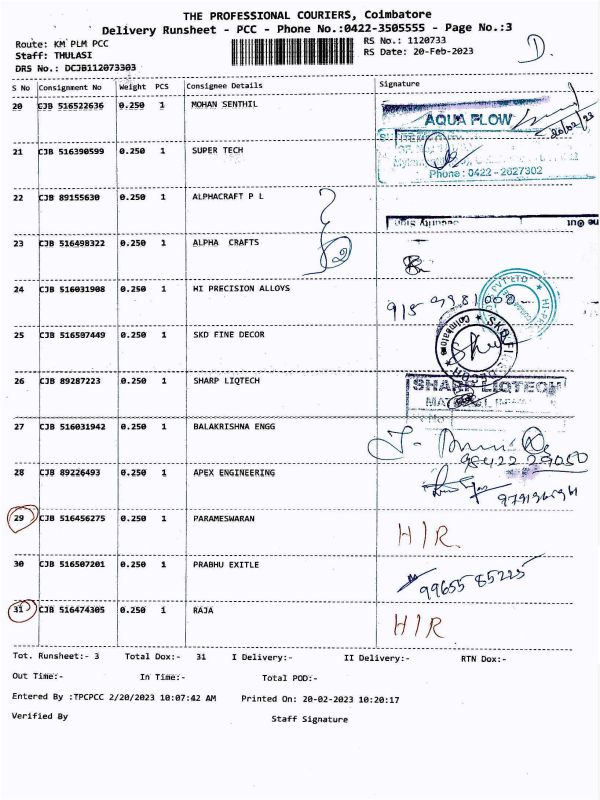 THE PROFESSIONAL COURIERS, Coimbatore
Delivery Runsheet - PCC - Phone No.:0422-3505555 - Page No.:3
Route: KM PLM PCC
RS No.: 1120733
Staff: THULASI
RS Date: 20-Feb-2023
D.
DRS No.: DCJB112073303
S No Consignment No Weight PCS Consignee Details Signature
20 CJB 516522636 0.250 1 MOHAN SENTHIL
AQUA FLOW
20/02/23
21 CJB 516390599 0.250 1 SUPER TECH
Phone : 0422 - 2627302
22 CJB 89155630 0.250 1 ALPHACRAFT P L
Security Sign
23 CJB 516498322 0.250 1 ALPHA CRAFTS
24 CJB 516031908 0.250 1 HI PRECISION ALLOYS
25 CJB 516507449 0.250 1 SKD FINE DECOR
Coimbatore
26 CJB 89287223 0.250 1 SHARP LIQTECH
SHARP LIQTECH
27 CJB 516031942 0.250 1 BALAKRISHNA ENGG
98422 29050
28 CJB 89226493 0.250 1 APEX ENGINEERING
29 CJB 516456275 0.250 1 PARAMESWARAN H/R.
30 CJB 516507201 0.250 1 PRABHU EXITLE 99655 85225
31 CJB 516474305 0.250 1 RAJA H/R
Tot. Runsheet:- 3 Total Dox:- 31 I Delivery:- II Delivery:- RTN Dox:-
Out Time:- In Time:- Total POD:-
Entered By :TPCPCC 2/20/2023 10:07:42 AM Printed On: 20-02-2023 10:20:17
Verified By Staff Signature